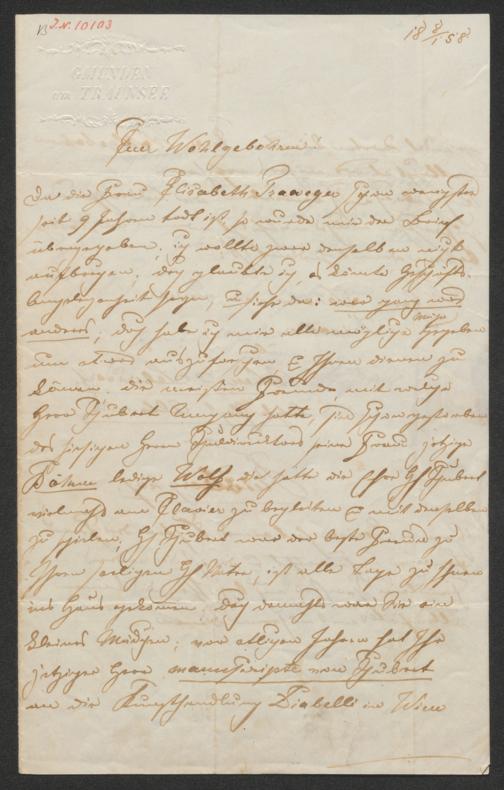 I.N. 10103
18 8/1 58
GMUNDEN
am TRAUNSEE
Euer Wohlgebohren!
Da die Frau Elisabeth Traweger schon wenigstens
seit 9 Jahren todt ist, so wurde mir der Brief
übergegeben, ich wollte zwar denselben nicht
aufbrechen, doch glaubte ich, es könnte Geschäfts
Angelegenheit seyn, u siehe da: was ganz was
anderes, doch habe ich mir alle mögliche Mühe gegeben
um etwas auszuforschen, & Ihnen dienen zu
können, die meisten Freunde, mit welche
Herr Schubert Umgang hatte, sind schon gestorben
des hiesigen Herrn Schuldirectors seine Frau jetzige
Böhm ledige Wolf die hatte die Ehre H Schubert
vielmahls am Clavier zu begleiten & mit denselben
zu spielen, H Schubert war der beste Freund zu
Ihren seeligen H Vater, ist alle Tage zu Ihnen
ins Haus gekommen, doch damahls war Sie ein
kleines Mädchen; vor etlichen Jahren hat Ihr
jetziger Herr manuscripte von Schubert
an die Kunsthandlung Diabelli in Wien